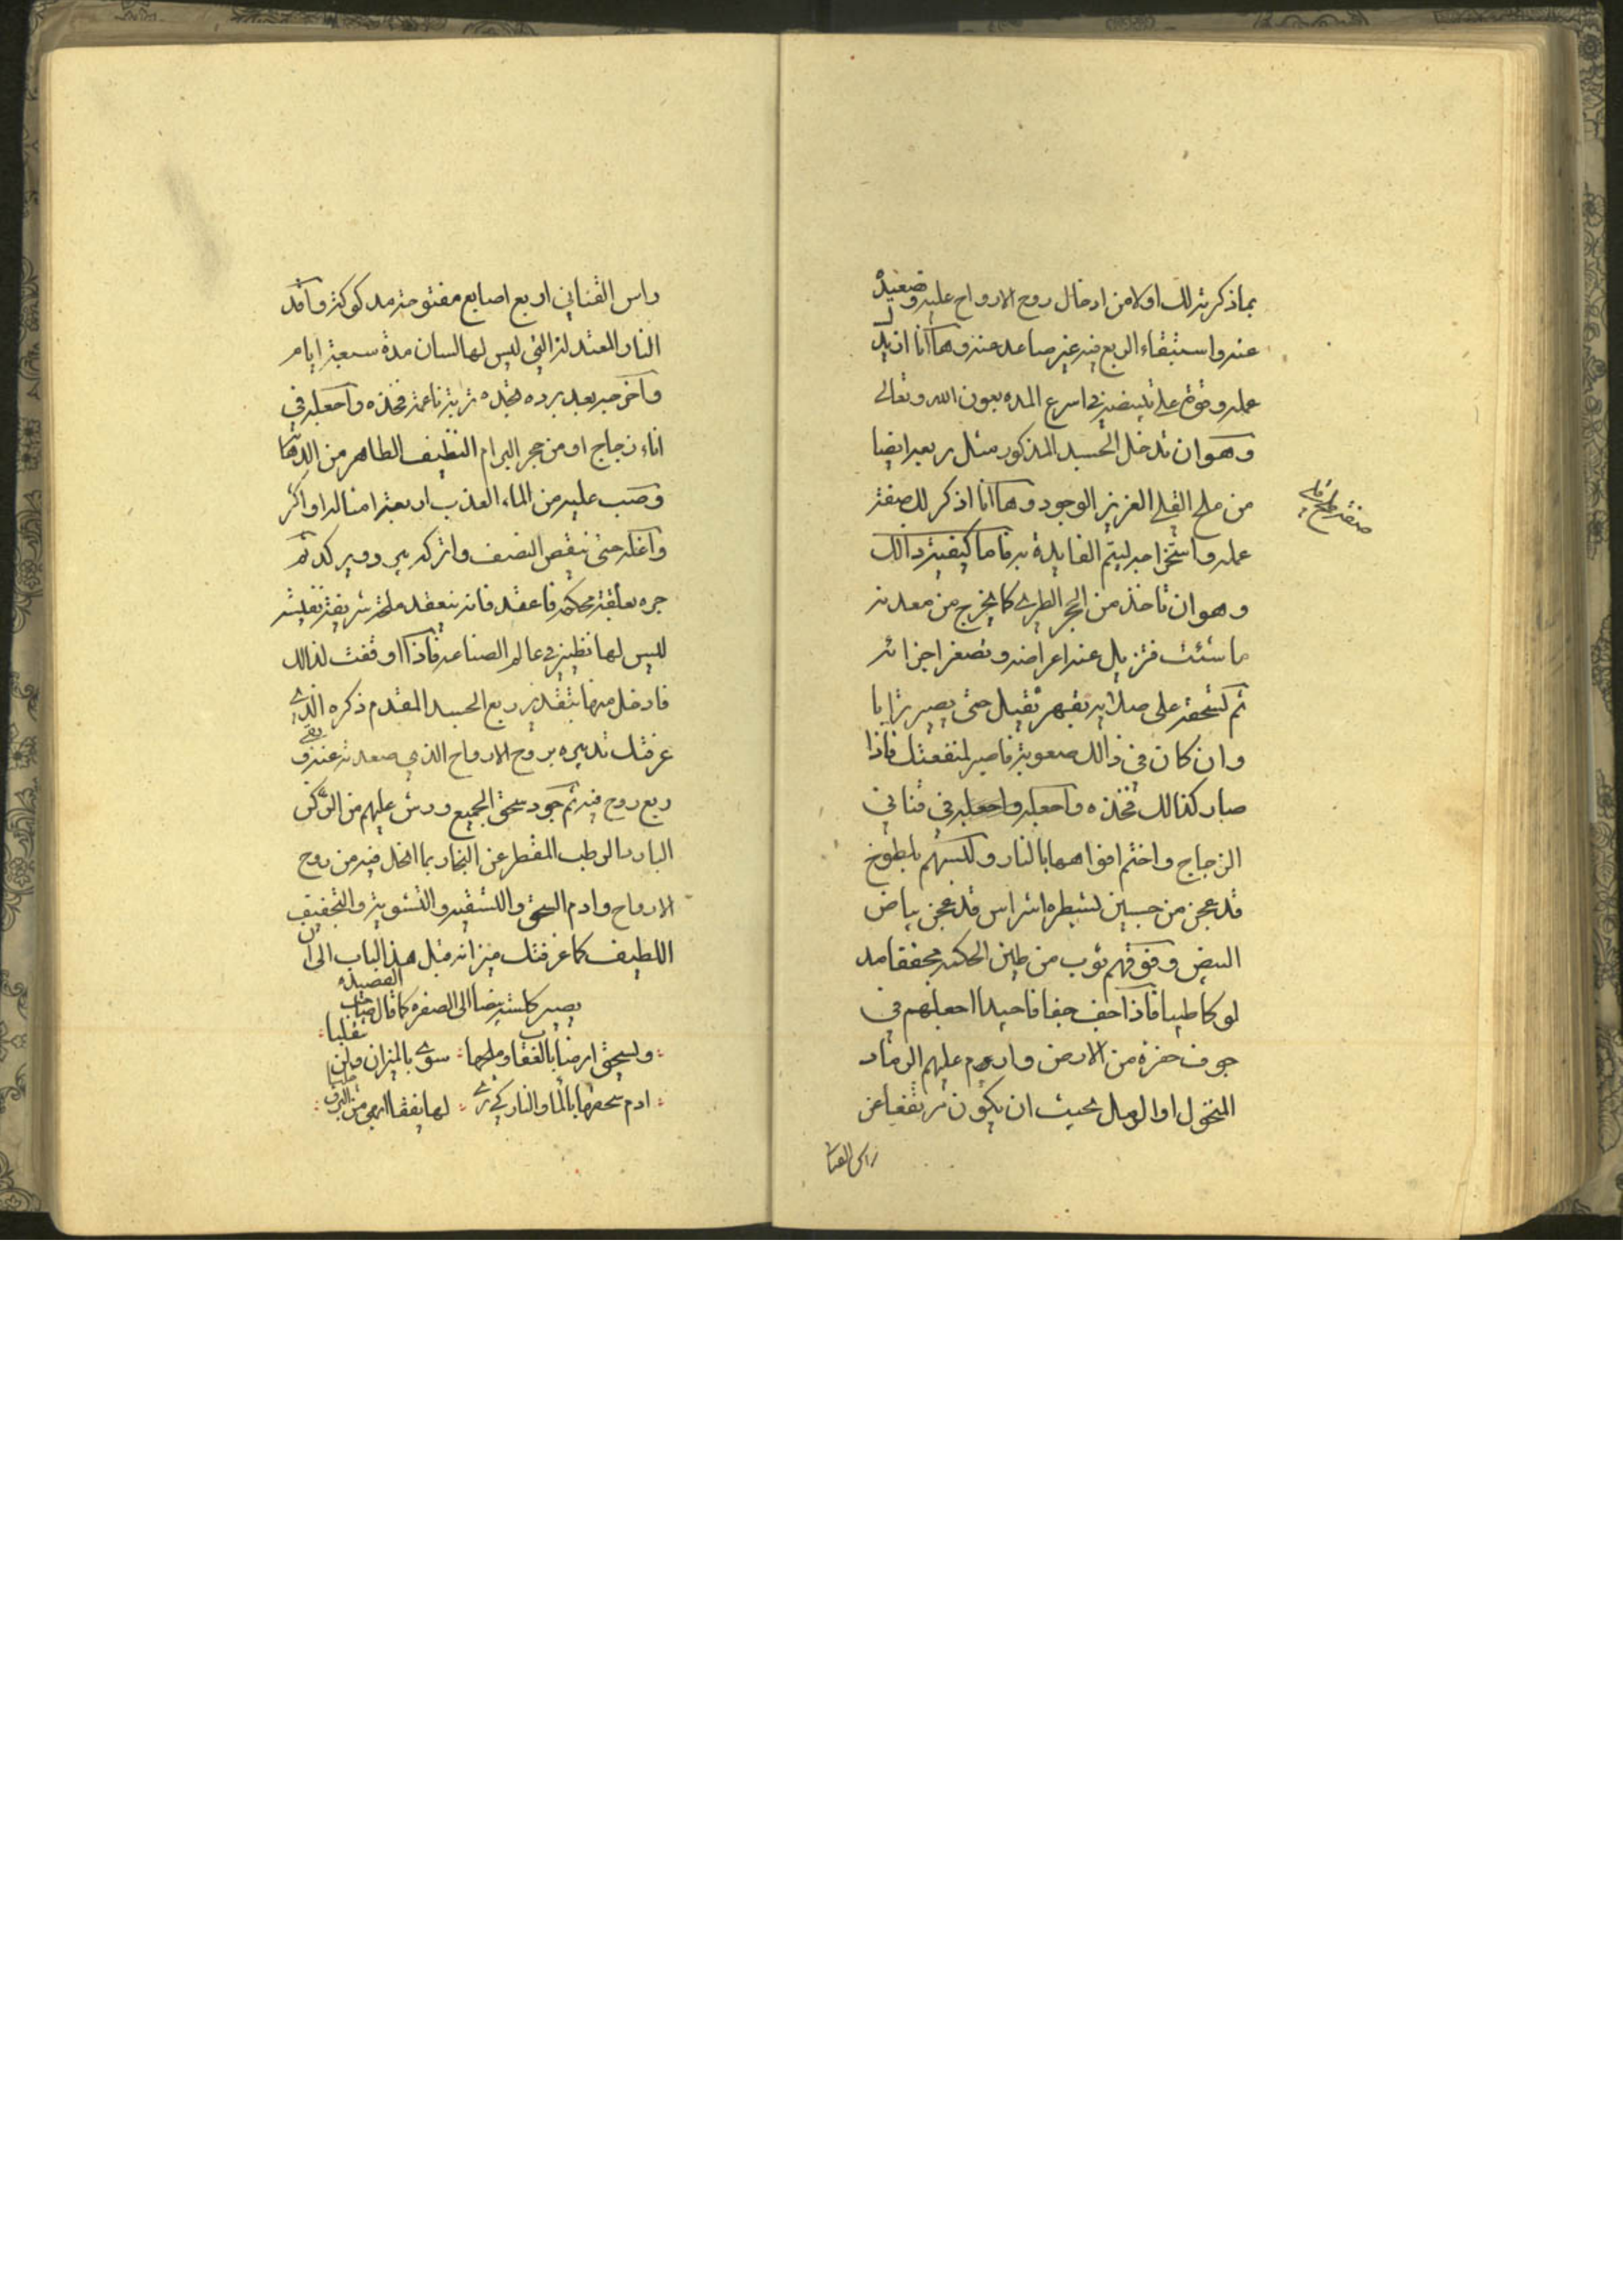 بما ذكرته لك اولا من ادخال روح الارواح عليه وتصعيده
عنه واستبقاء الربع فيه غير صاعد عنه وها انا ازيد لك
عمله وقوة على تبييضه في اسرع المده بعون الله وتعالى
وهو ان تدخل الجسد المذكور مثل ربعه ايضا
من ملح القلي العزيز الوجود وها انا اذكر لك صفة
صفة ملح قلي
عمله واستخراجه ليتم الفايدة به فاما كيفية ذالك
وهو ان تاخذ من الحجر الطري كما يخرج من معدنه
ما شئت فتزيل عنه اعراضه وتصغر اجزائه
ثم تسحقه على صلايه بفهر ثقيل حتى يصير ترابا
وان كان في ذالك صعوبة فاصبر لمنفعتك فاذا
صار كذالك فخذه واجعله واجعله في قناني
الزجاج واختم افواهها بالنار ولبسهم بلطوخ
قد عجن من جبسين لشطره اشراس قد عجن ببياض
البيض وفوقهم ثوب من طين الحكمه مجففا مد
لوكا طيبا فاذا جف جفافا جيدا اجعلهم في
جوف حفرة من الارض واردم عليهم الرماد
المنخول او الرمل بحيث ان يكون مرتفعا عن
راس القناني
راس القناني اربع اصابع مفتوحة مدكوكة واقد
النار المعتدلة التي ليس لها لسان مدة سبعة ايام
واخرجه بعد برده تجده تربة ناعمة فخذه واجعله في
اناء زجاج او من حجر البرام النظيف الطاهر من الدهانة
وصب عليه من الماء العذب اربعة امثاله او اكثر
واغله حتى ينقص النصف واتركه يبرد ويركد ثم
جره بعلقة محكمه فاعقد فانه ينعقد ملحة شريفة نفيسة
ليس لها نظير في عالم الصناعه فاذا اوقفت لذالك
فادخل منها بتقدير ربع الجسد المقدم ذكره الذي
عرفتك تدبيره بروح الارواح الذي صعدته عنه وبقي
ربع روح فيه ثم جود سحق الجميع ورش عليهم من الركن
البارد الرطب المقطر عن البخار بما انحل فيه من روح
الارواح وادم السحق والتسقيه والتشوية والتجفيف
اللطيف كما عرفتك ميزانه قبل هذا الباب الى ان
يصير كلسه بيضا الى الصفره كما قال صاحب القصيده
ويسحق ارضا بالنقا وملحها سوي بالميزان ولن تغلبا
ادم سحقها بالما والنار كي ترى لها نفقا ابهى من البرق